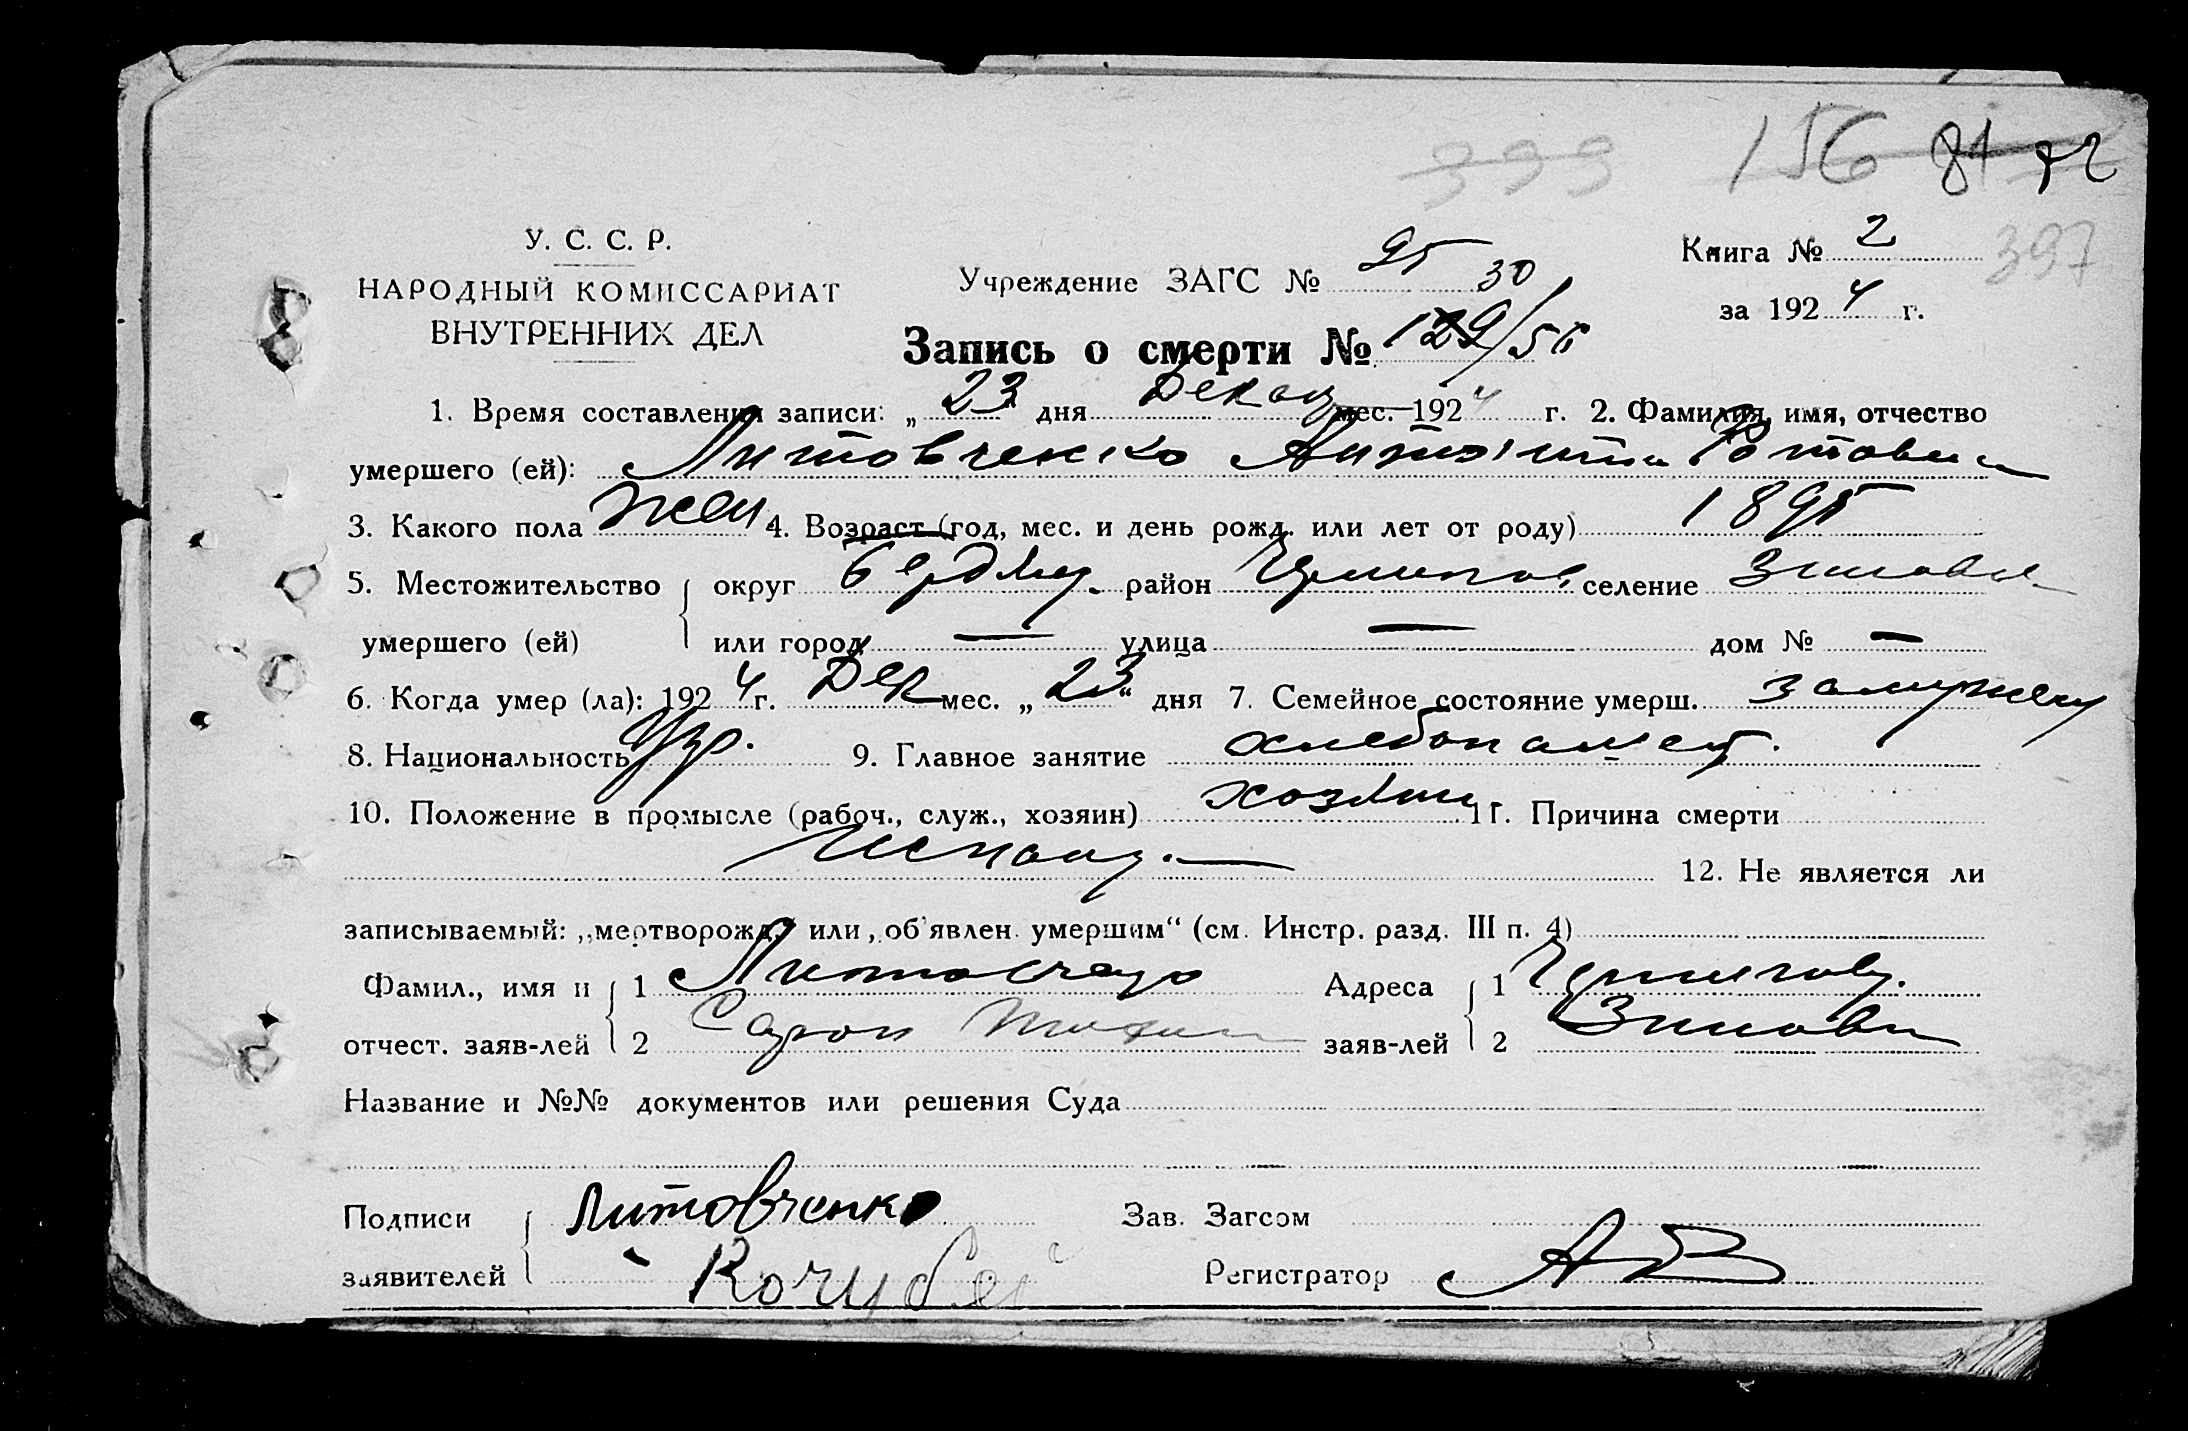 399 156 81 72
У. С. С. Р.
НАРОДНЫЙ КОМИССАРИАТ
ВНУТРЕННИХ ДЕЛ
Учреждение ЗАГС № 95 30
Книга № 2 397
за 1924 г.
Запись о смерти № 129/56
1. Время составления записи: „23" дня Декаб мес. 1924 г. 2. Фамилия, имя, отчество
умершего (ей): Литовченко
3. Какого пола жен. 4. Возраст (год, мес. и день рожд. или лет от роду) 1895
5. Местожительство округ район селение
умершего (ей) или город — улица — дом № —
6. Когда умер (ла): 1924 г. Дек мес. „23" дня 7. Семейное состояние умерш. замужем
8. Национальность Укр. 9. Главное занятие хлебопашец.
10. Положение в промысле (рабоч., служ., хозяин) хозяин 11. Причина смерти
12. Не является ли
записываемый: „мертворожд." или „об'явлен умершим" (см. Инстр. разд. III п. 4)
Фамил., имя и 1 Литовченко Адреса 1
отчест. заяв-лей 2 заяв-лей 2
Название и №№ документов или решения Суда
Подписи Литовченко Зав. Загсом
заявителей Кочубей Регистратор